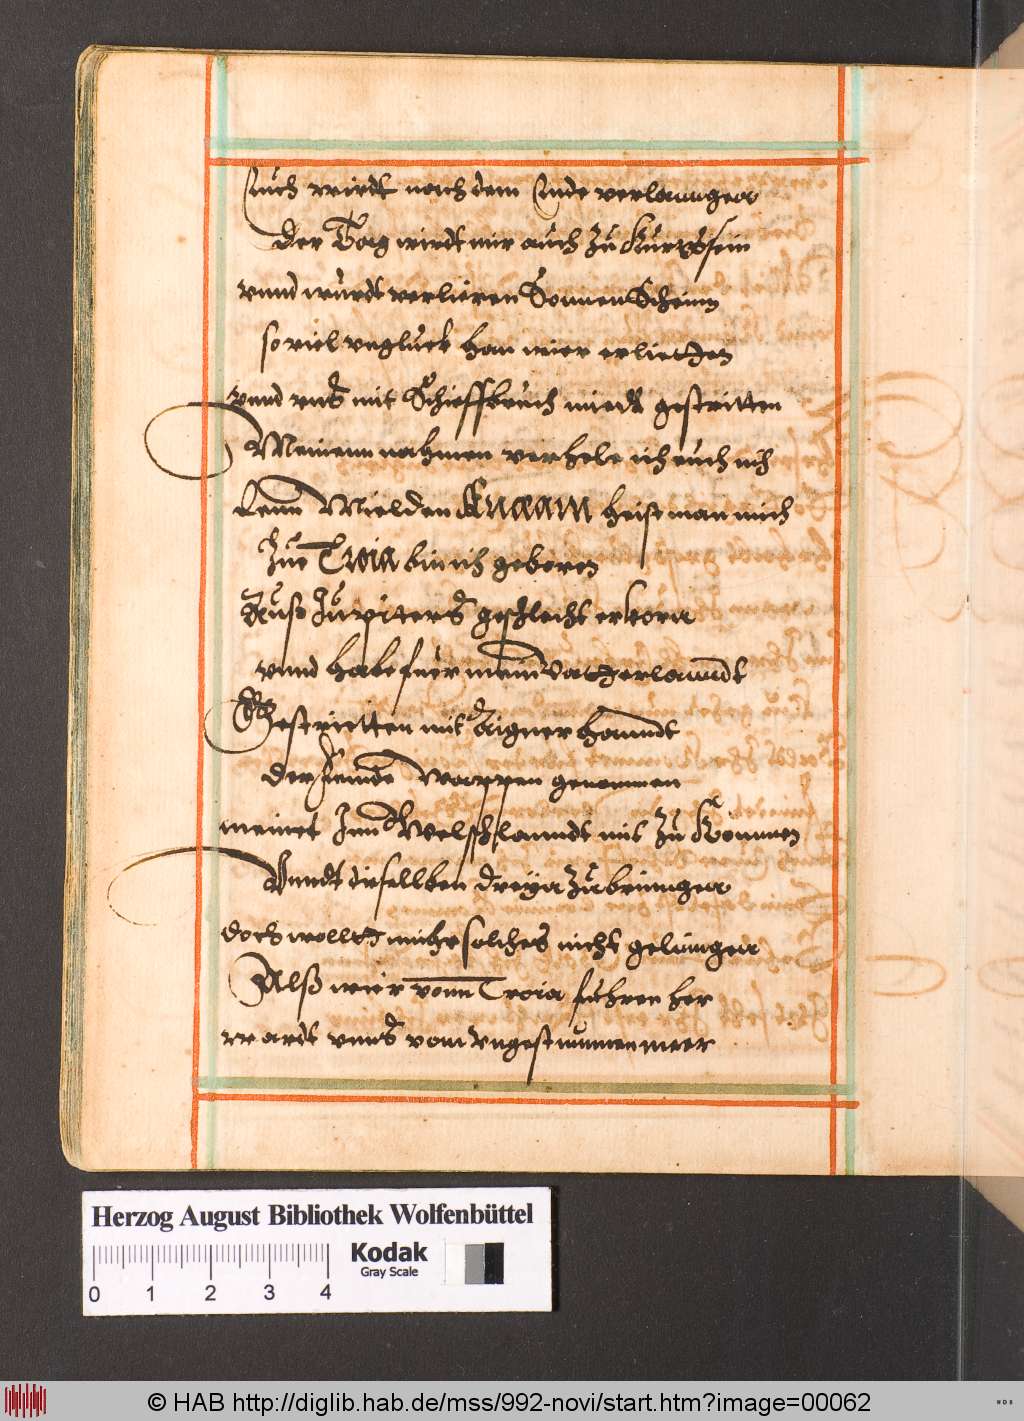 Euch wirdt nach dem Ende verlanngen
Der Tag wirdt mir auch zu kurtz sein
vnnd würdt verlieren Sonnen Scheinn
so viel vngluck han wier erlietten
vnnd vnß mit Schieffbruch gestritten
Meinenn nahmen verhele ich euch nit
Denn Mielden Eneam heist man mich
Zue Troia bin ich geboren
Auß Jupiters geschlecht erkoren
vnnd habe fuer mein Vatterlanndt
Gestrietten mit Aigner Hanndt
der feinde Wappen genommen
meinet Inn Welschlanndt mit zu kommen
Vnndt dieselben zubrinngen
doch wollt mihr solches nicht gelingen
Alß wier vonn Troia fuhren her
wardt vnnß vom vngestuimmen meer
Herzog August Bibliothek Wolfenbüttel
Kodak
Gray Scale
0 1 2 3 4
© HAB http://diglib.hab.de/mss/992-novi/start.htm?image=00062